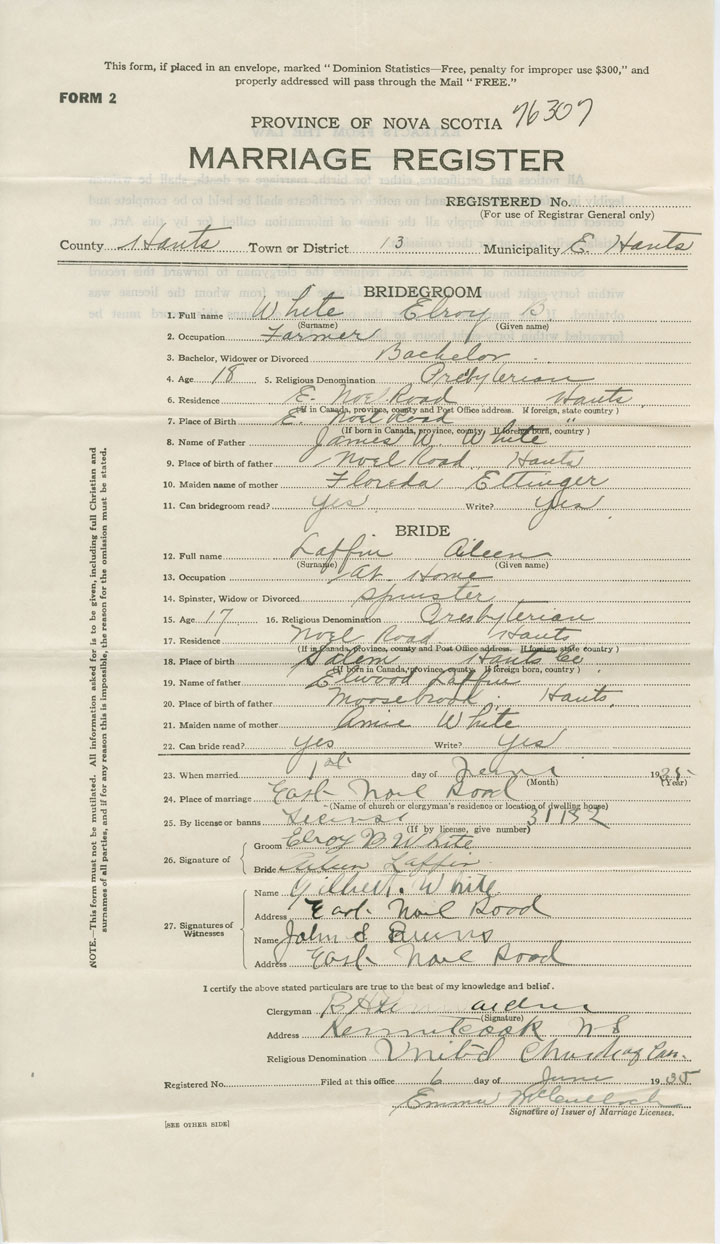 This form, if placed in an envelope, marked "Dominion Statistics—Free, penalty for improper use $300," and
properly addressed will pass through the Mail "FREE."
FORM 2
PROVINCE OF NOVA SCOTIA 76307
MARRIAGE REGISTER
REGISTERED No.
(For use of Registrar General only)
County Hants Town or District 13 Municipality E. Hants
BRIDEGROOM
1. Full name White Elroy B.
(Surname) (Given name)
2. Occupation Farmer
3. Bachelor, Widower or Divorced Bachelor
4. Age 18 5. Religious Denomination Presbyterian
6. Residence E. Noel Road Hants
(If in Canada, province, county and Post Office address. If foreign, state country)
7. Place of Birth E. Noel Road "
(If born in Canada, province, county. If foreign born, country)
8. Name of Father James W. White
9. Place of birth of father Noel Road Hants
10. Maiden name of mother Floreda Ettinger
11. Can bridegroom read? Yes Write? Yes
BRIDE
12. Full name Laffin Aileen
(Surname) (Given name)
13. Occupation At Home
14. Spinster, Widow or Divorced Spinster
15. Age 17 16. Religious Denomination Presbyterian
17. Residence Noel Road Hants
(If in Canada, province, county and Post Office address. If foreign, state country)
18. Place of birth Salem Hants Co
(If born in Canada, province, county. If foreign born, country)
19. Name of father Elwood Laffin
20. Place of birth of father Moosebrook Hants.
21. Maiden name of mother Amie White
22. Can bride read? Yes Write? Yes
23. When married 1st day of June 1935
(Month) (Year)
24. Place of marriage East Noel Road
(Name of church or clergyman's residence or location of dwelling house)
25. By license or banns License 31132
(If by license, give number)
26. Signature of
Groom Elroy B White
Bride Aileen Laffin
27. Signatures of Witnesses
Name Gilbert. White
Address East Noel Road
Name John S Burns
Address East Noel Road
I certify the above stated particulars are true to the best of my knowledge and belief.
Clergyman
(Signature)
Address Kennetcook N S
Religious Denomination United Church of Can.
Registered No. Filed at this office 6 day of June 1935
Emma McCulloch
Signature of Issuer of Marriage Licenses.
[SEE OTHER SIDE]
NOTE.—This form must not be mutilated. All information asked for is to be given, including full Christian and
surnames of all parties, and if for any reason this is impossible, the reason for the omission must be stated.